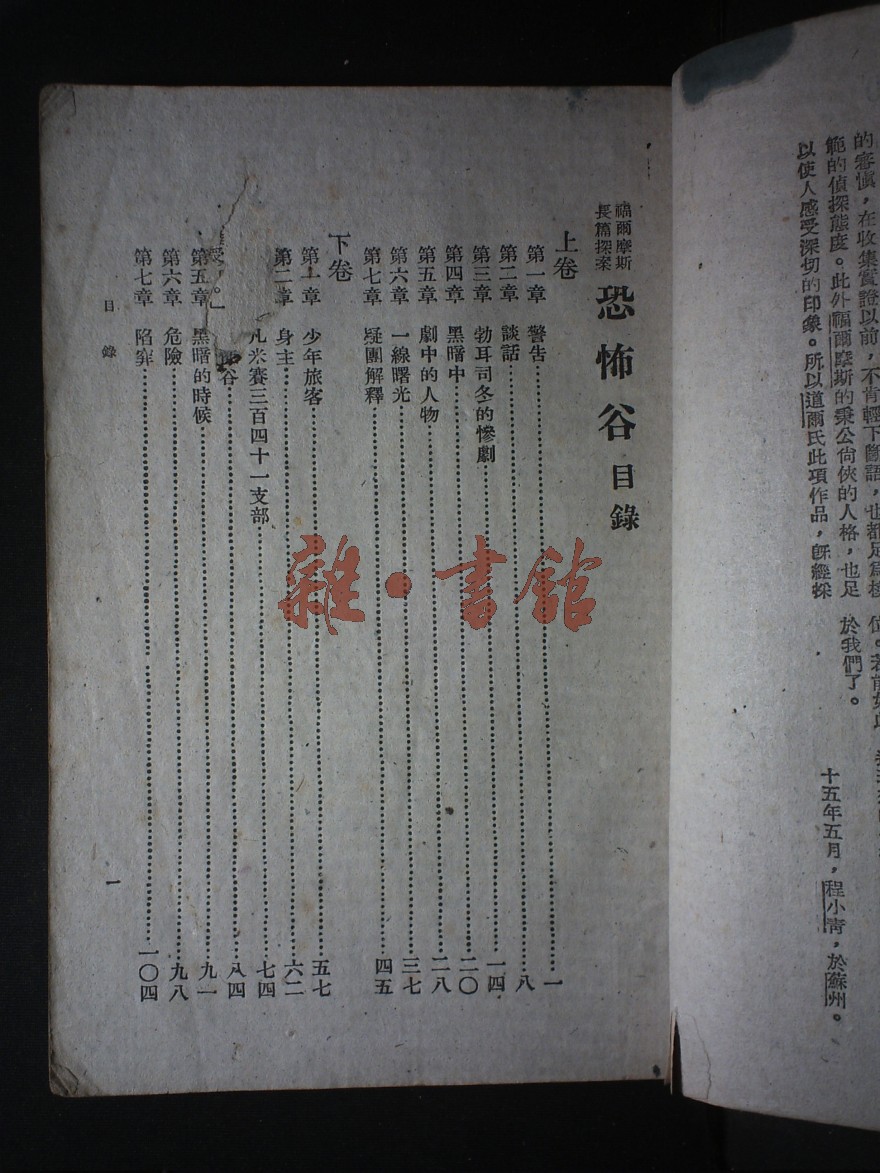 的審慎，在收集實證以前，不肯輕下斷語，也都足爲模
範的偵探態度。此外福爾摩斯的秉公尙俠的人格，也足
以使人感受深切的印象。所以道爾氏此項作品，旣經
於我們了。
十五年五月，程小靑，於蘇州。
福爾摩斯
長篇探案
恐怖谷目錄
上卷
第一章 警告 一
第二章 談話 八
第三章 勃耳司冬的慘劇 一四
第四章 黑暗中 二〇
第五章 劇中的人物 二八
第六章 一線曙光 三七
第七章 疑團解釋 四五
下卷
第一章 少年旅客 五七
第二章 身主 六二
凡米賽三百四十一支部 七四
谷 八四
第五章 黑暗的時候 九一
第六章 危險 九八
第七章 陷穽 一〇四
受 。」
目錄
一
雜·書館